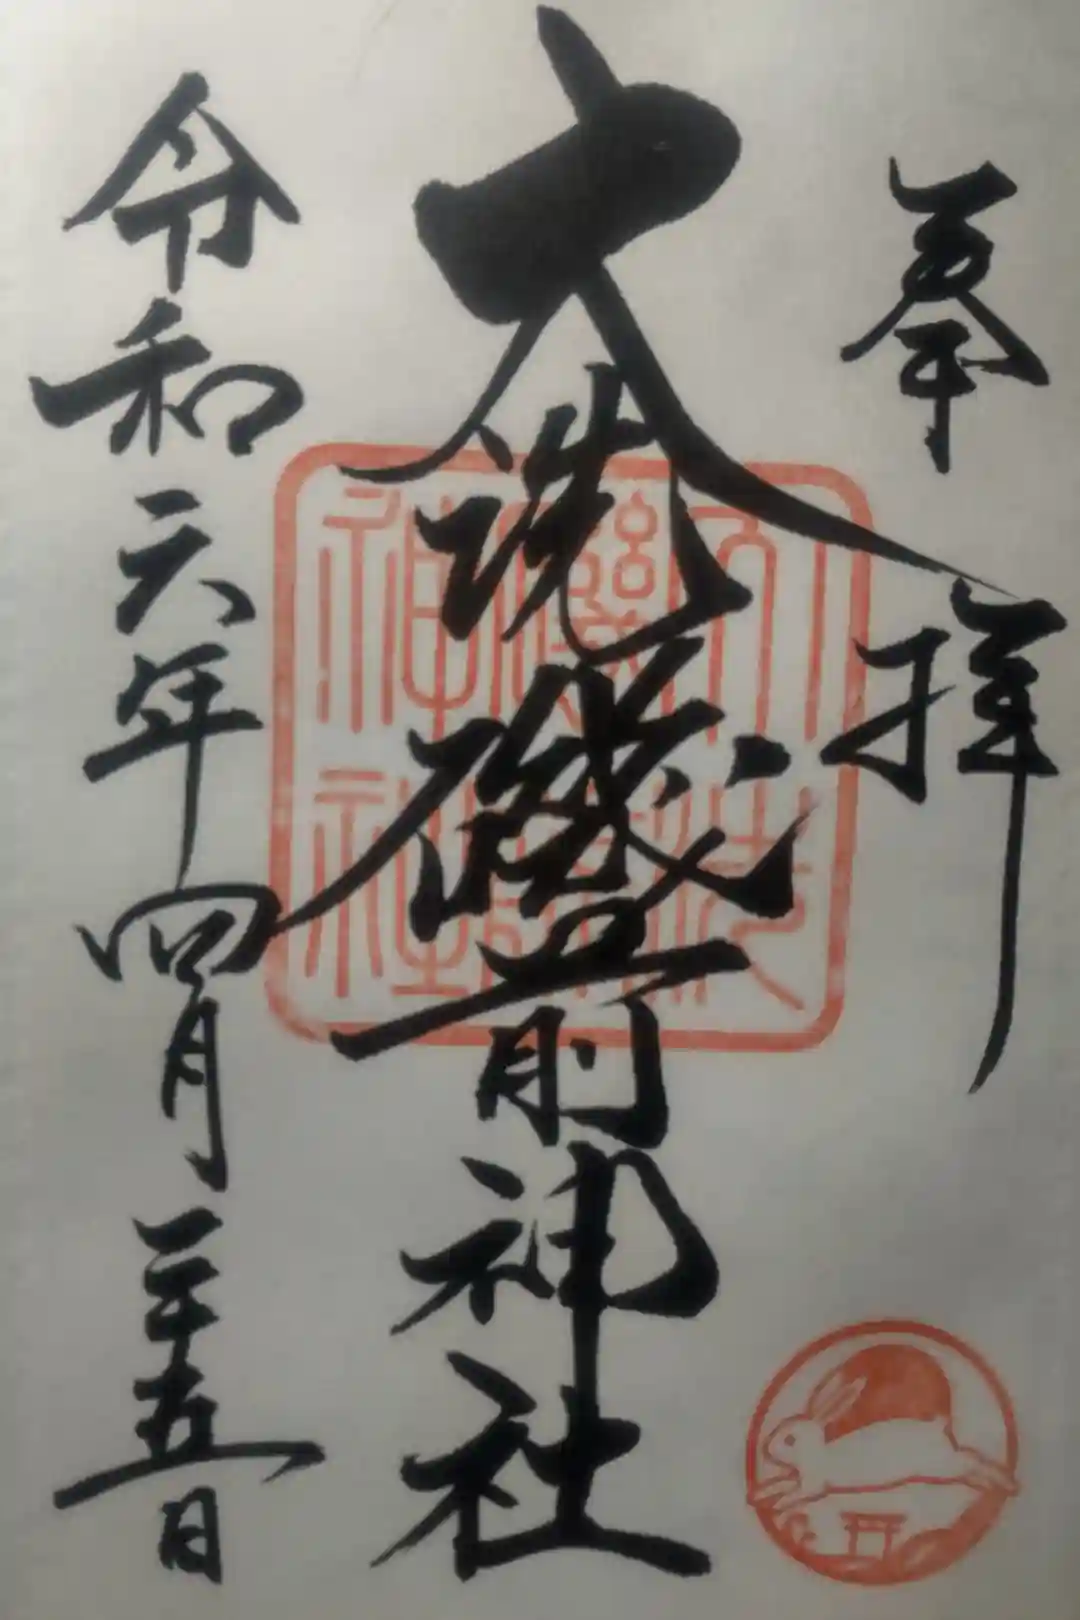 奉拝
大洗磯前神社
令和六年四月二十五日
大洗
磯前
神社